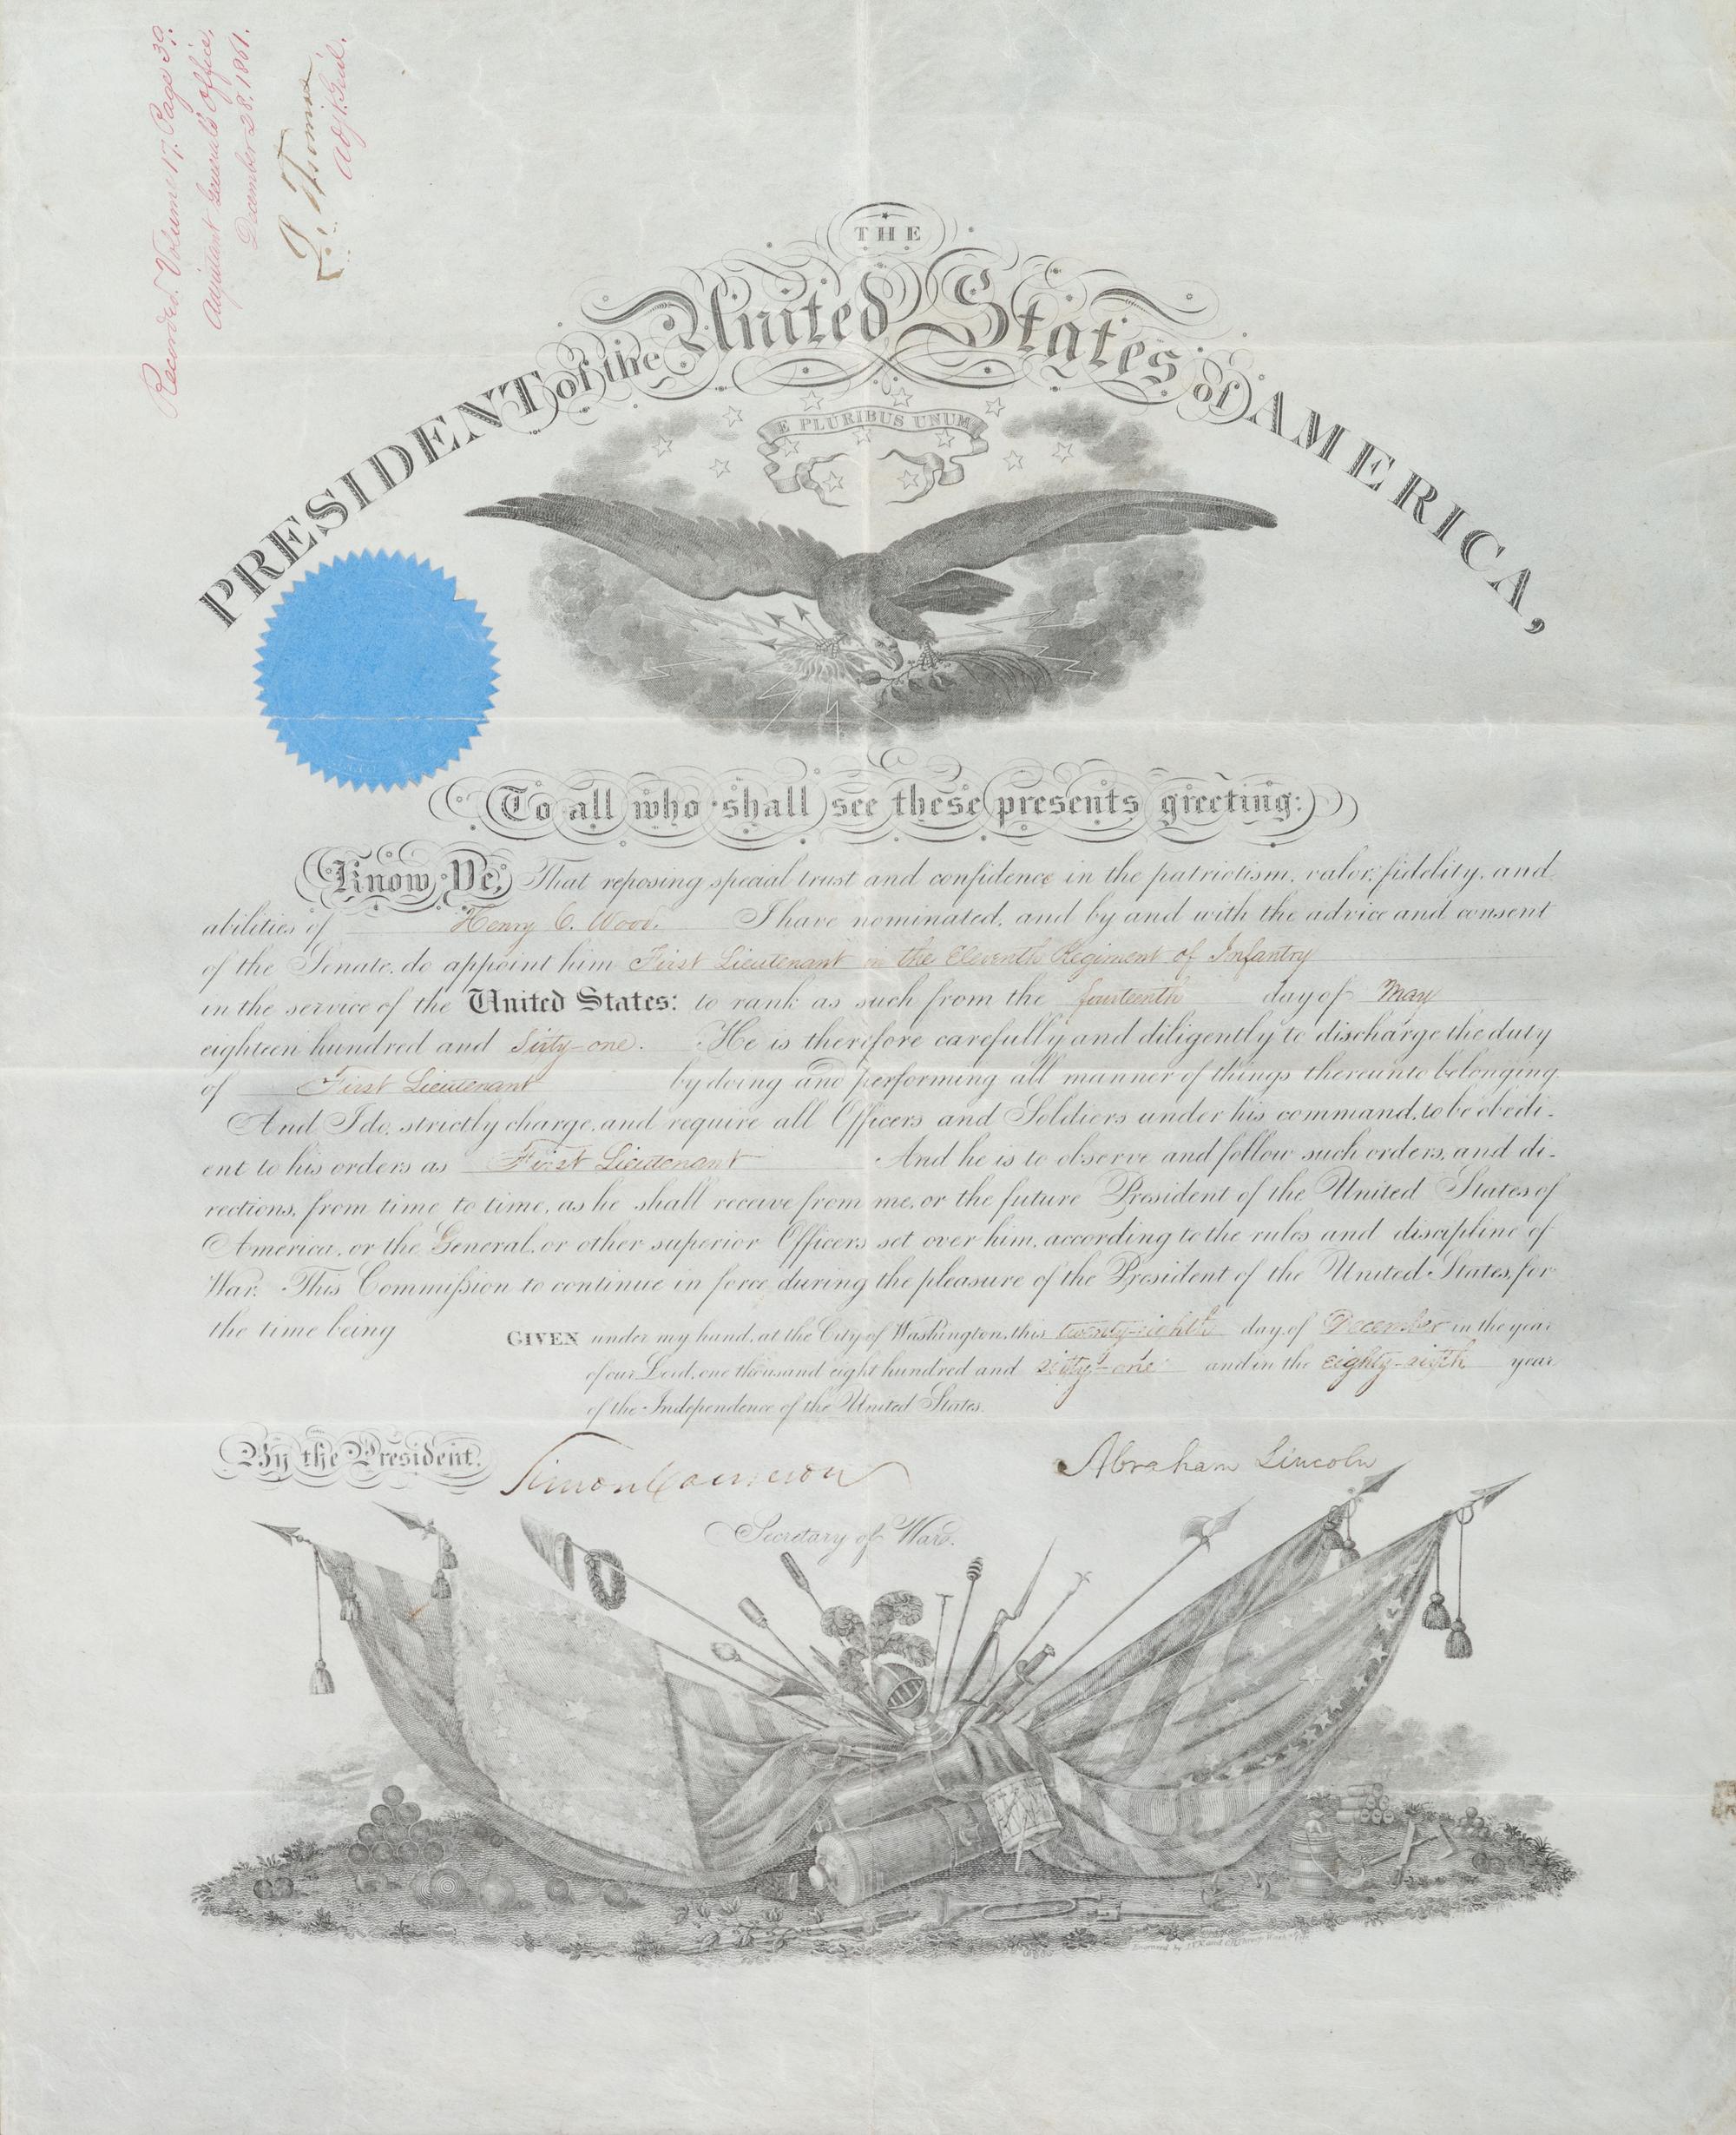 Recorded. Volume 17. Page 39.
Adjutant General's Office,
December 28. 1861.
L. Thomas
Adjt. Genl.
THE
PRESIDENT of the United States of AMERICA,
E PLURIBUS UNUM
To all who shall see these presents greeting:
Know Ye, That reposing special trust and confidence in the patriotism, valor, fidelity, and
abilities of Henry C. Wood. I have nominated, and by and with the advice and consent
of the Senate, do appoint him First Lieutenant in the Eleventh Regiment of Infantry
in the service of the United States: to rank as such from the fourteenth day of May
eighteen hundred and sixty-one. He is therefore carefully and diligently to discharge the duty
of First Lieutenant by doing and performing all manner of things thereunto belonging.
And I do, strictly charge, and require all Officers and Soldiers under his command, to be obedi-
ent to his orders as First Lieutenant And he is to observe and follow such orders, and di-
rections, from time to time, as he shall receive from me, or the future President of the United States of
America, or the General, or other superior Officers set over him, according to the rules and discipline of
War. This Commission to continue in force during the pleasure of the President of the United States, for
the time being
GIVEN under my hand, at the City of Washington, this twenty-eighth day of December in the year
of our Lord, one thousand eight hundred and sixty-one and in the eighty-sixth year
of the Independence of the United States.
By the President,
Simon Cameron
Abraham Lincoln
Secretary of War.